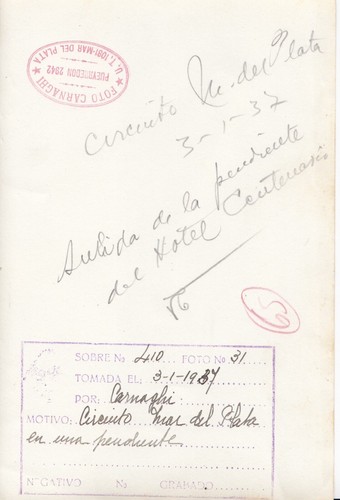 ★ FOTO CARNAGHI ★
PUEYRREDON 2942
U. T. 1081-MAR DEL PLATA
Circuito M. del Plata
3-1-37
Subida de la pendiente
del Hotel Centenario
SOBRE No 410 FOTO No 31
TOMADA EL: 3-1-1937
POR: Carnaghi
MOTIVO: Circuito Mar del Plata
en una pendiente
NEGATIVO No GRABADO